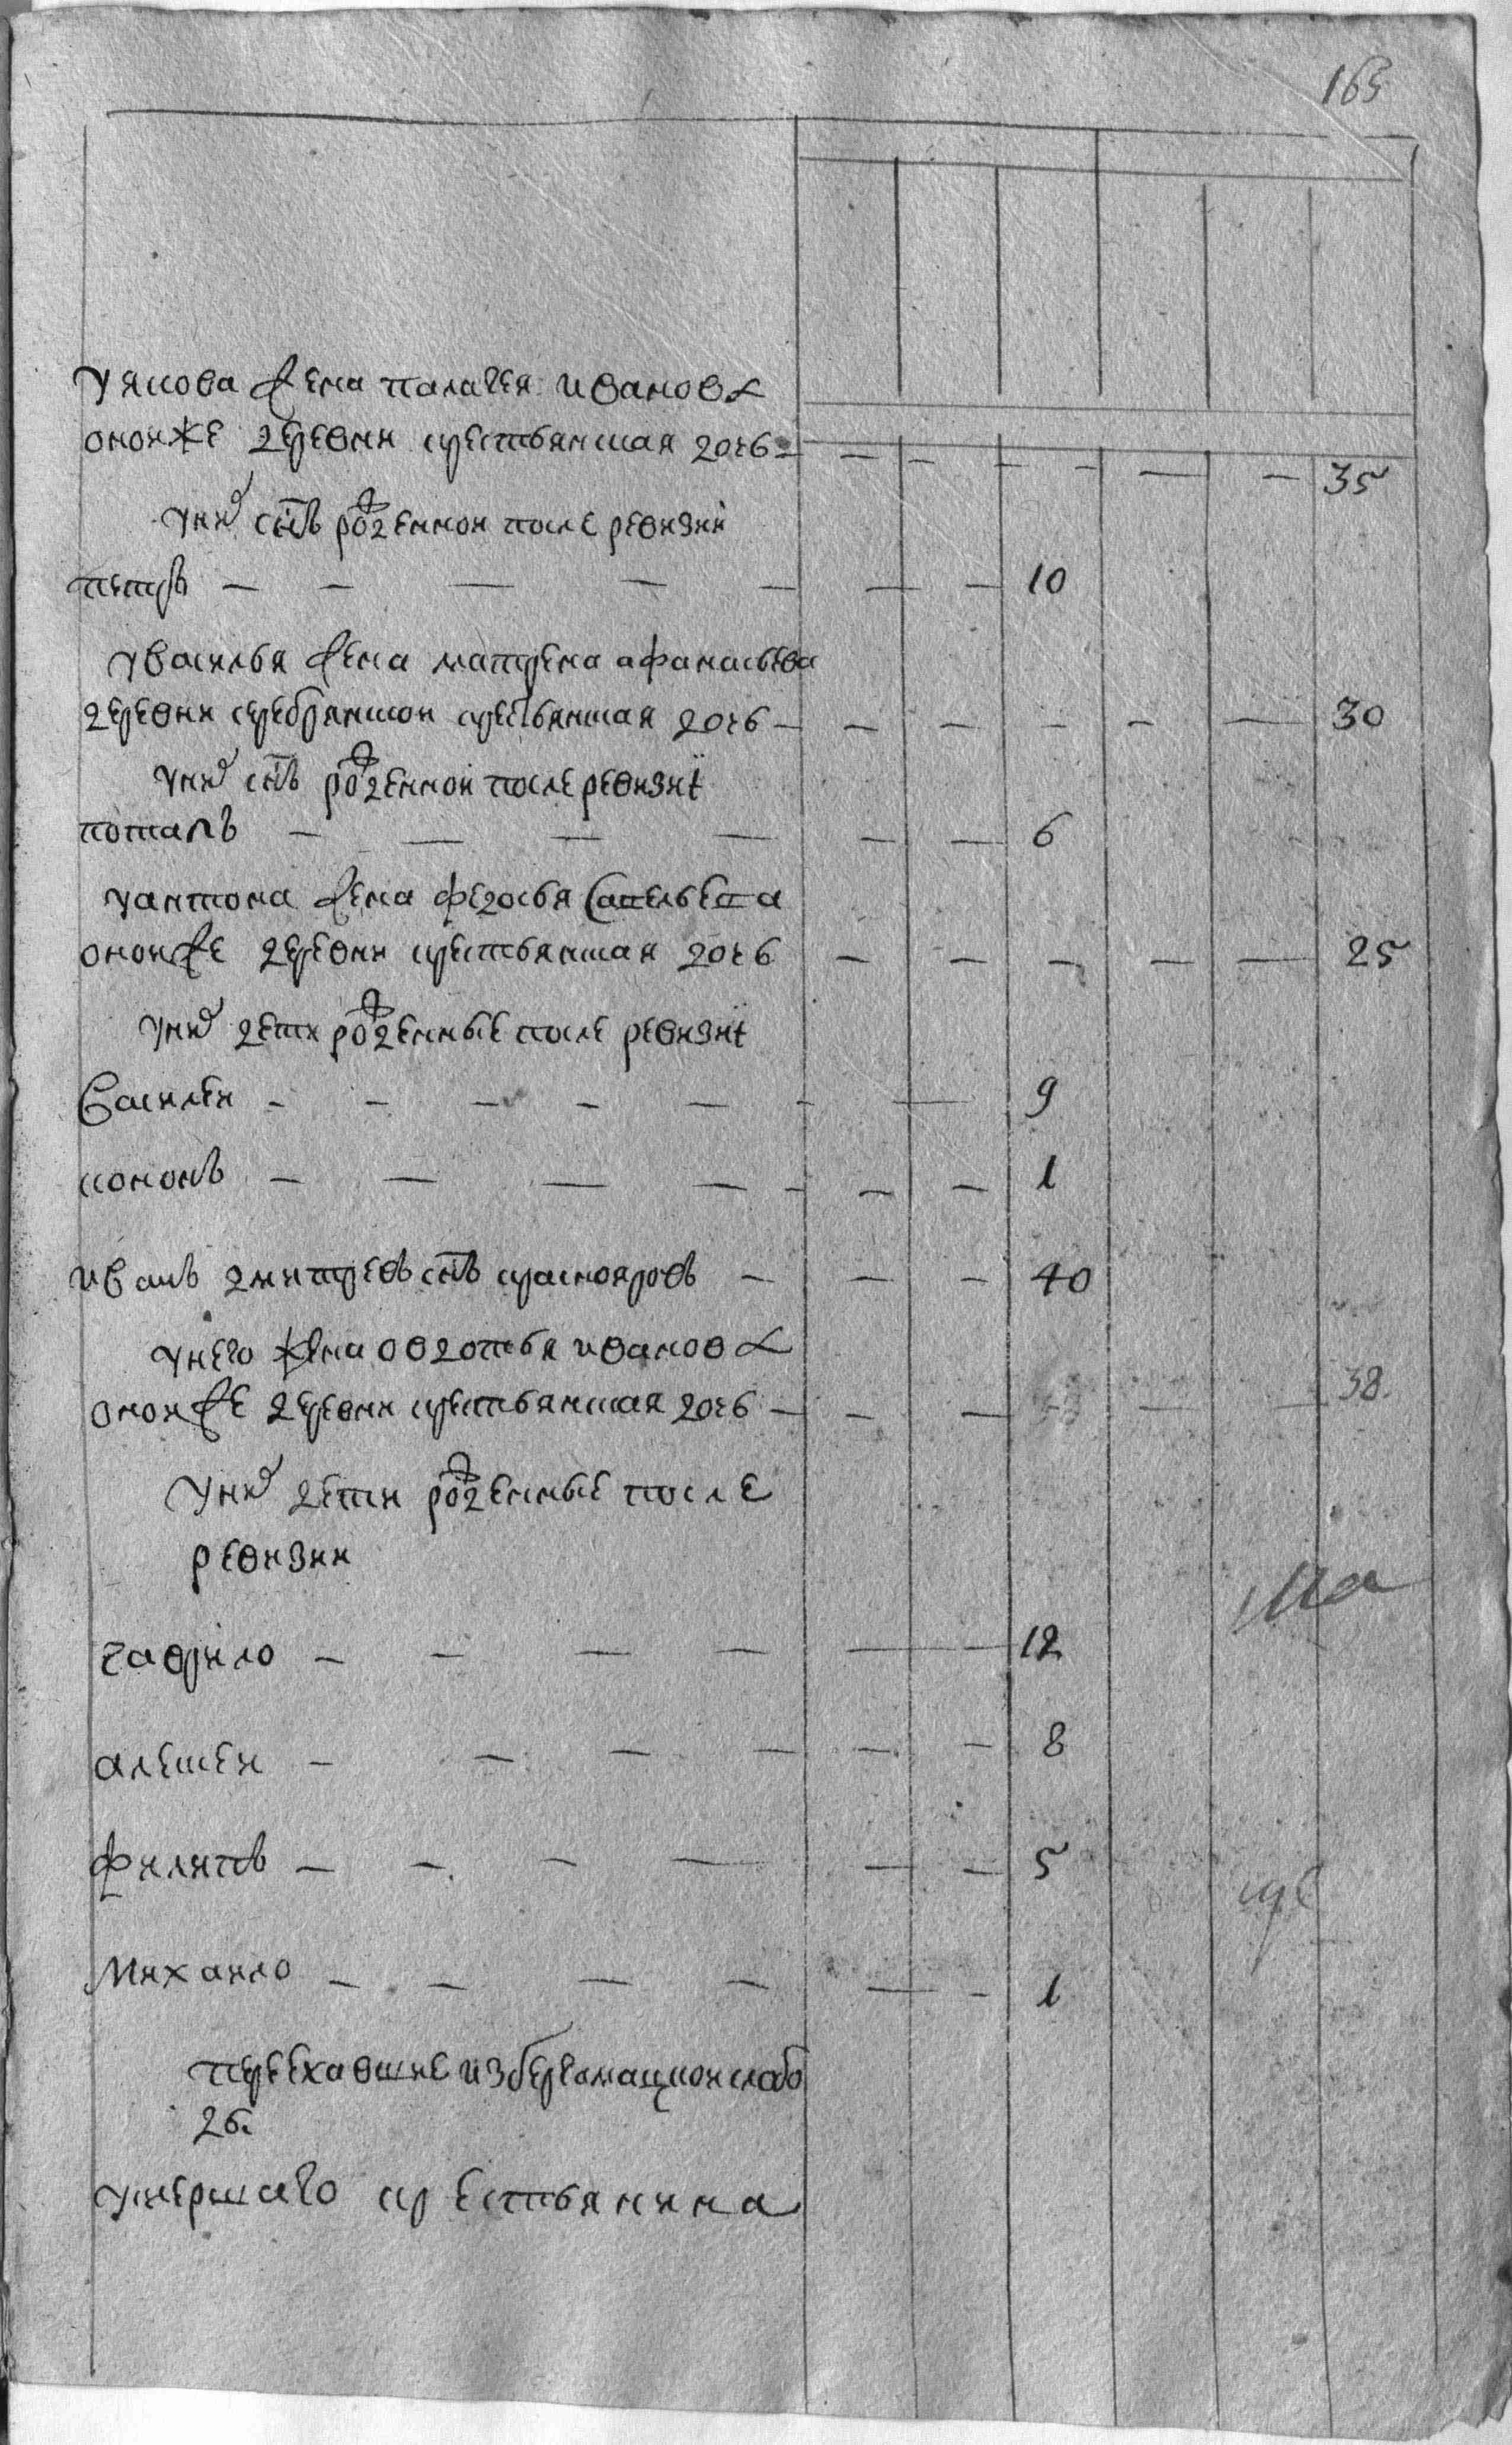 165
уякова жена палагея иванова
оной же деревни крестьянская дочь 35
уних снъ рожденной после ревизии
петръ 10
увасилья жена матрена афанасьева
деревни серебрянской крестьянская дочь 30
уних снъ рожденной после ревизиі
потапъ 6
уантона жена федосья савельева
оной же деревни крестьянская дочь 25
уних дети рожденные после ревизиі
василей 9
кононъ 1
иванъ дмитревъ снъ краснояровъ 40
унего жена овдотья иванова
оной же деревни крестьянская дочь 38.
уних дети рожденные после
ревизии
гаврило 12
алексей 8
филипъ 5
михаило 1
переехавшие избергамацкой слобо
ды.
умершаго крестьянина